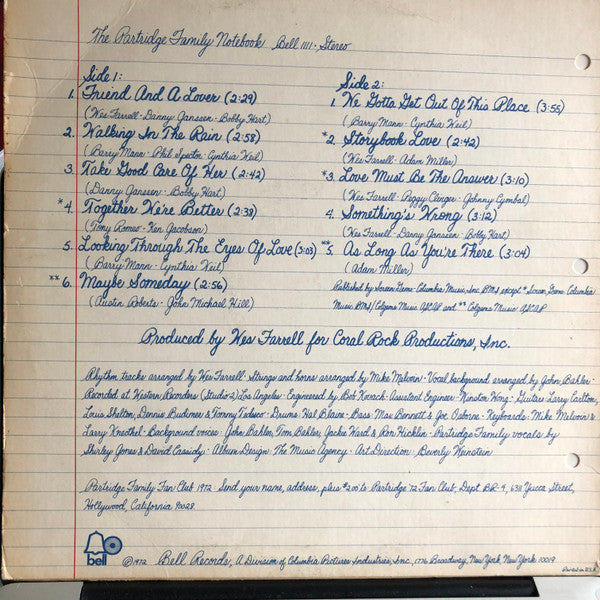 The Partridge Family Notebook Bell 1111 · Stereo
Side 1:
1. Friend And A Lover (2:29)
(Wes Farrell · Danny Janssen · Bobby Hart)
2. Walking In The Rain (2:58)
(Barry Mann · Phil Spector · Cynthia Weil)
3. Take Good Care Of Her (2:42)
(Danny Janssen · Bobby Hart)
*4. Together We're Better (2:39)
(Tony Romeo · Ken Jacobson)
5. Looking Through The Eyes Of Love (3:03)
(Barry Mann · Cynthia Weil)
**6. Maybe Someday (2:56)
(Austin Roberts · John Michael Hill)
Side 2:
1. We Gotta Get Out Of This Place (3:55)
(Barry Mann · Cynthia Weil)
*2. Storybook Love (2:42)
(Wes Farrell · Adam Miller)
*3. Love Must Be The Answer (3:10)
(Wes Farrell · Peggy Clinger · Johnny Cymbal)
4. Something's Wrong (3:12)
(Wes Farrell · Danny Janssen · Bobby Hart)
**5. As Long As You're There (3:04)
(Adam Miller)
Published by Screen Gems-Columbia Music, Inc. BMI except * Screen Gems-Columbia
Music BMI/Colgems Music ASCAP and ** Colgems Music ASCAP
Produced by Wes Farrell for Coral Rock Productions, Inc.
Rhythm tracks arranged by Wes Farrell · Strings and horns arranged by Mike Melvoin · Vocal background arranged by John Bahler ·
Recorded at Western Recorders (Studio 2) Los Angeles · Engineered by Bob Kovach · Assistant Engineer · Winston Wong · Guitars: Larry Carlton,
Louis Shelton, Dennis Budimer & Tommy Tedesco · Drums: Hal Blaine · Bass: Max Bennett & Joe Osborne · Keyboards: Mike Melvoin &
Larry Knechtel · Background voices: John Bahler, Tom Bahler, Jackie Ward & Ron Hicklin · Partridge Family vocals by
Shirley Jones & David Cassidy · Album Design: The Music Agency · Art Direction: Beverly Weinstein
Partridge Family Fan Club 1972 · Send your name, address, plus $2.00 to Partridge '72 Fan Club, Dept. BR-4, 6311 Yucca Street,
Hollywood, California 90028
bell
©1972 Bell Records, A Division of Columbia Pictures Industries, Inc., 1776 Broadway, New York, New York 10019
Printed in U.S.A.